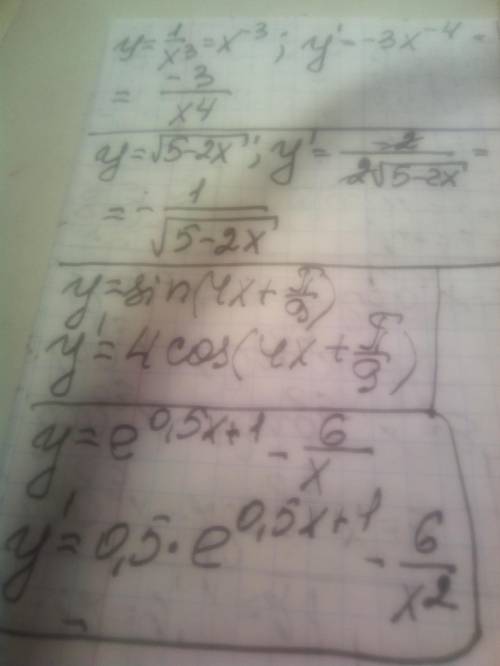 y = 1/x³ = x⁻³ ; y' = -3x⁻⁴ =
= -3/x4
y = √5-2x ; y' = -2/2√5-2x =
= - 1/√5-2x
y = sin(4x + π/9)
y' = 4 cos(4x + π/9)
y = e^0,5x+1 - 6/x
y' = 0,5 · e^0,5x+1 - 6/x²